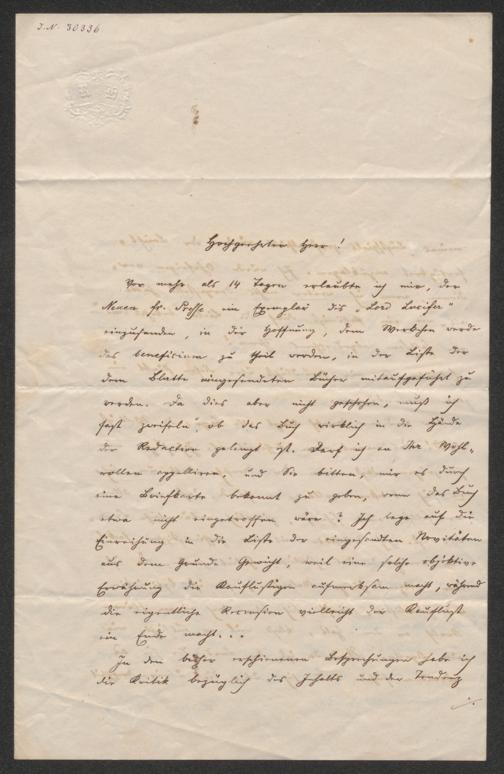 J.N. 30336
Hochgeehrter Herr!
Vor mehr als 14 Tagen erlaubte ich mir, der
Neuen fr. Presse ein Exemplar des „Lord Lucifer"
einzusenden, in der Hoffnung, dem Werkchen werde
das beneficium zu theil werden, in der Liste der
dem Blatte eingesendeten Bücher mitaufgeführt zu
werden. Da dies aber nicht geschehen, muß ich
fast zweifeln, ob das Buch wirklich in die Hände
der Redaction gelangt ist. Darf ich an Ihr Wohl-
wollen appelliren, und Sie bitten, mir es durch
eine Briefkarte bekannt zu geben, wenn das Buch
etwa nicht eingetroffen wäre? Ich lege auf die
Einreihung in die Liste der eingesandten Novitäten
aus dem Grunde Gewicht, weil eine solche objektive
Erwähnung die Kauflustigen aufmerksam macht, während
die eigentliche Recension vielleicht der Kauflust
ein Ende macht...
In den bisher erschienenen Besprechungen habe ich
die Kritik bezüglich des Inhalts und der Tendenz